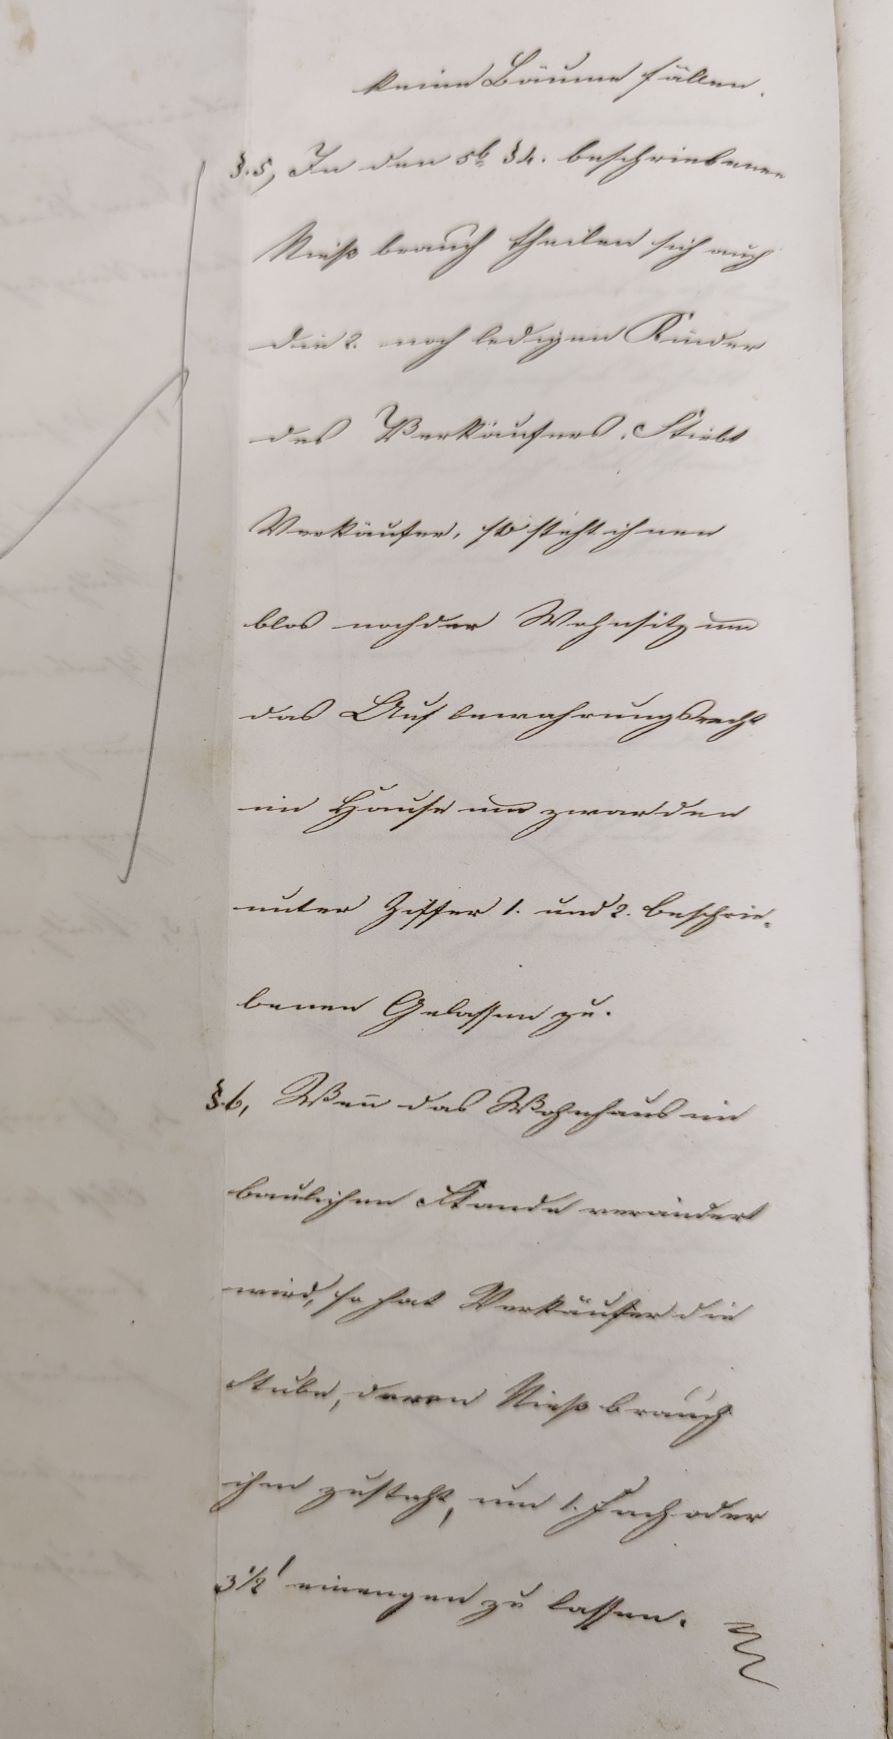 keine Bäume fällen.
§.5, In den sb §4. beschriebenen
Nießbrauch theilen sich auch
die 2. noch ledigen Kinder
des Verkäufers. Stirbt
Verkäufer, so steht ihnen
blos noch der Wohnsitz und
das Aufbewahrungsrecht
im Hause und zwar den
unter Ziffer 1. und 2. beschrie-
benen Gelassen zu.
§.6, Weñ das Wohnhaus im
baulichen Stande verändert
wird, so hat Verkäufer die
Stube, deren Nießbrauch
ihm zusteht, um 1. Fach oder
3½' einengen zu lassen.